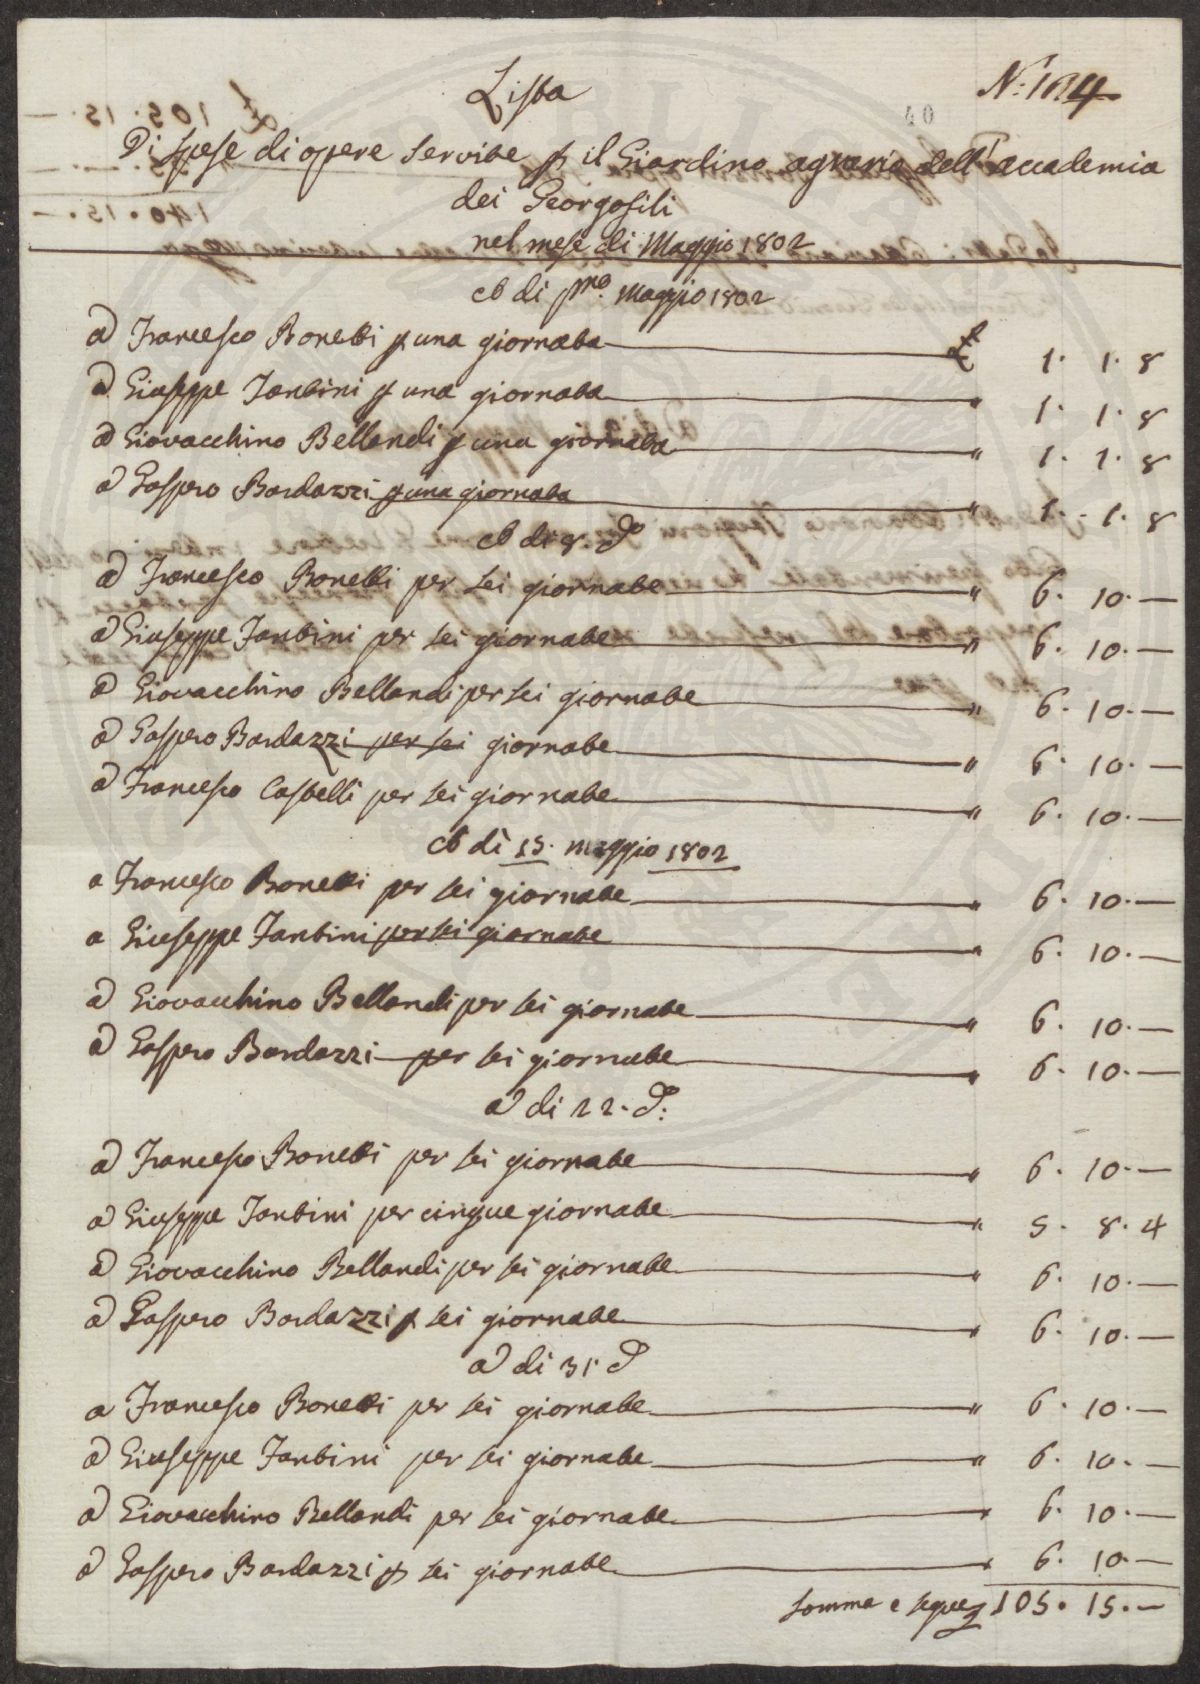 Lista
N: 104
40
Di spese di opere servite p il Giardino agrario dell'accademia
dei Georgofili
nel mese di Maggio 1802
A di pmo Maggio 1802
A Francesco Bonetti p una giornata £ 1. 1. 8
A Giuseppe Tantini p una giornata " 1. 1. 8
A Giovacchino Bellandi p una giornata " 1. 1. 8
A Gaspero Bardazzi p una giornata " 1. 1. 8
A di 8. do
A Francesco Bonetti per sei giornate " 6. 10. —
A Giuseppe Tantini per sei giornate " 6. 10. —
A Giovacchino Bellandi per sei giornate " 6. 10. —
A Gaspero Bardazzi per sei giornate " 6. 10. —
A Francesco Castelli per sei giornate " 6. 10. —
A di 15. maggio 1802
a Francesco Bonetti per sei giornate " 6. 10. —
a Giuseppe Tantini per sei giornate " 6. 10. —
A Giovacchino Bellandi per sei giornate " 6. 10. —
A Gaspero Bardazzi per sei giornate " 6. 10. —
A di 22. do:
A Francesco Bonetti per sei giornate " 6. 10. —
A Giuseppe Tantini per cinque giornate " 5. 8. 4
A Giovacchino Bellandi per sei giornate " 6. 10. —
A Gaspero Bardazzi p sei giornate " 6. 10. —
A di 31 do
a Francesco Bonetti per sei giornate " 6. 10. —
A Giuseppe Tantini per sei giornate " 6. 10. —
A Giovacchino Bellandi per sei giornate " 6. 10. —
A Gaspero Bardazzi p sei giornate " 6. 10 —
Somma e segue £ 105. 15. —